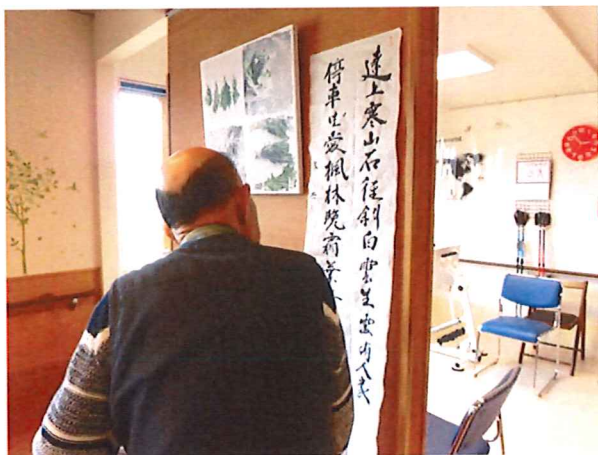 遠上寒山石径斜白雲生處有人家
停車坐愛楓林晩霜葉